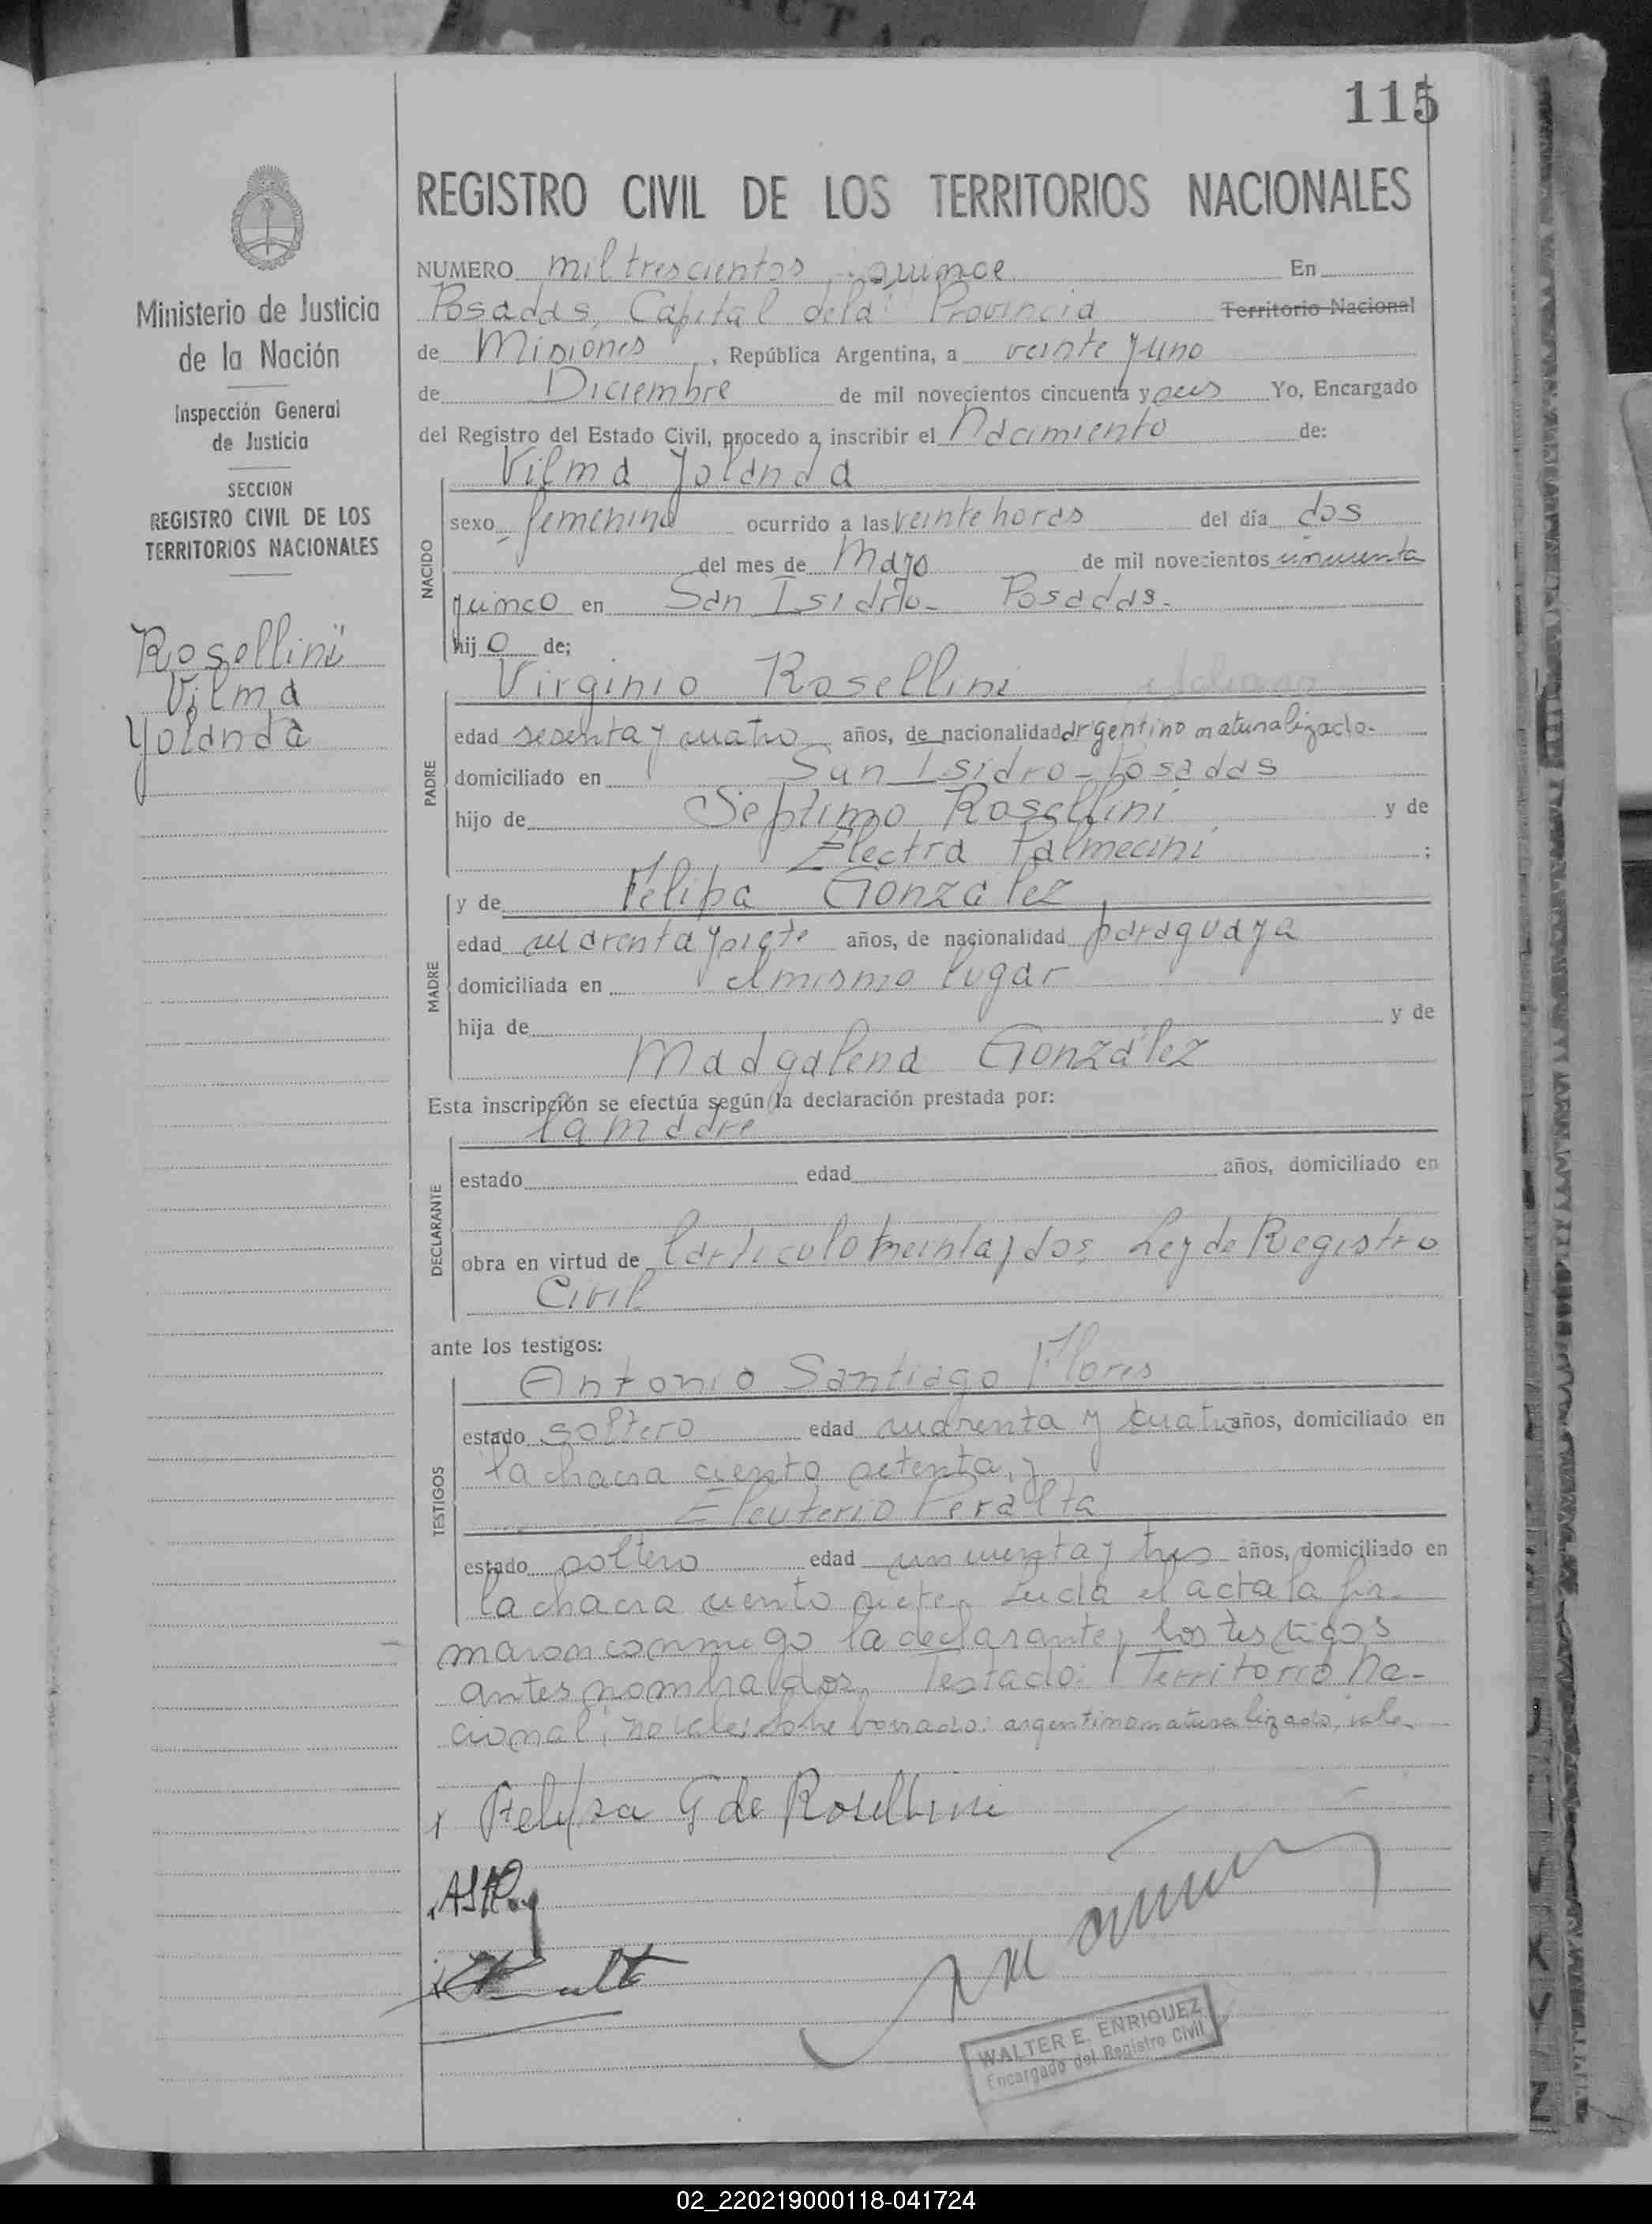 ACTAS
115
REGISTRO CIVIL DE LOS TERRITORIOS NACIONALES
NUMERO mil trescientos quince En
Posadas, Capital de la Provincia Territorio Nacional
de Misiones, República Argentina, a veinte y uno
de Diciembre de mil novecientos cincuenta y seis Yo, Encargado
del Registro del Estado Civil, procedo a inscribir el Nacimiento de:
Vilma Yolanda
NACIDO
sexo femenino ocurrido a las veinte horas del día dos
del mes de Mayo de mil novecientos cincuenta
y cinco en San Isidro - Posadas.
hij o de;
Virginio Rosellini
PADRE
edad sesenta y cuatro años, de nacionalidad argentino naturalizado.
domiciliado en San Isidro - Posadas
hijo de Septimo Rosellini y de
Electra Palmecini ;
y de Felipa González
MADRE
edad cuarenta y siete años, de nacionalidad paraguaya
domiciliada en el mismo lugar
hija de y de
Madgalena González
Esta inscripción se efectúa según la declaración prestada por:
la madre
DECLARANTE
estado edad años, domiciliado en
obra en virtud de l artículo treinta y dos, Ley de Registro
Civil
ante los testigos:
Antonio Santiago Flores
TESTIGOS
estado soltero edad cuarenta y cuatro años, domiciliado en
la chacra ciento setenta, y
Eleuterio Peralta
estado soltero edad cincuenta y tres años, domiciliado en
la chacra ciento siete. Leida el acta la fir-
maron conmigo la declarante y los testigos
antes nombrados. Testado: Territorio Na-
cional; no vale; sobre borrado: argentino naturalizado, vale.
Felipa G de Rosellini
WALTER E. ENRIQUEZ
Encargado del Registro Civil
Ministerio de Justicia
de la Nación
Inspección General
de Justicia
SECCION
REGISTRO CIVIL DE LOS
TERRITORIOS NACIONALES
Rosellini
Vilma
Yolanda
02_220219000118-041724